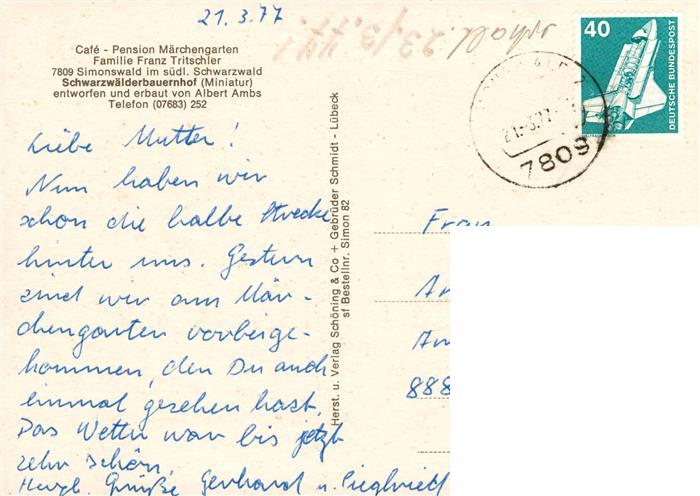 21.3.77
erhalt. 23/3.77.
40
DEUTSCHE BUNDESPOST
21.-3.77
7809
Café - Pension Märchengarten
Familie Franz Tritschler
7809 Simonswald im südl. Schwarzwald
Schwarzwälderbauernhof (Miniatur)
entworfen und erbaut von Albert Ambs
Telefon (07683) 252
Liebe Mutter!
Nun haben wir
schon die halbe Strecke
hinter uns. Gestern
sind wir am Mär-
chengarten vorbeige-
kommen, den Du auch
einmal gesehen hast.
Das Wetter war bis jetzt
sehr schön.
Herzl. Grüße, Gerhard u. Sieglinde
Herst. u. Verlag Schöning & Co + Gebrüder Schmidt - Lübeck
sf Bestellnr. Simon 82
Frau
An
Am
888